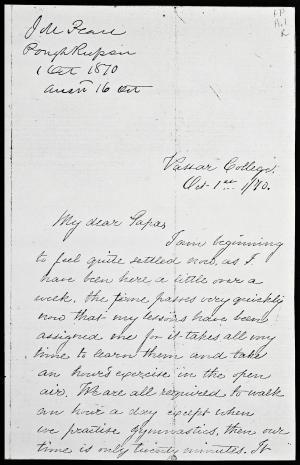 Poughkeepsie
1 Oct 1870
ansd 16 Oct
Vassar College.
Oct 1st /70.
My dear Papa,
I am beginning
to feel quite settled now, as I
have been here a little over a
week. The time passes very quickly
now that my lessons have been
assigned me for it takes all my
time to learn them and take
an hour's exercise in the open
air. We are all required to walk
an hour a day except when
we practise gymnastics, then our
time is only twenty minutes. It